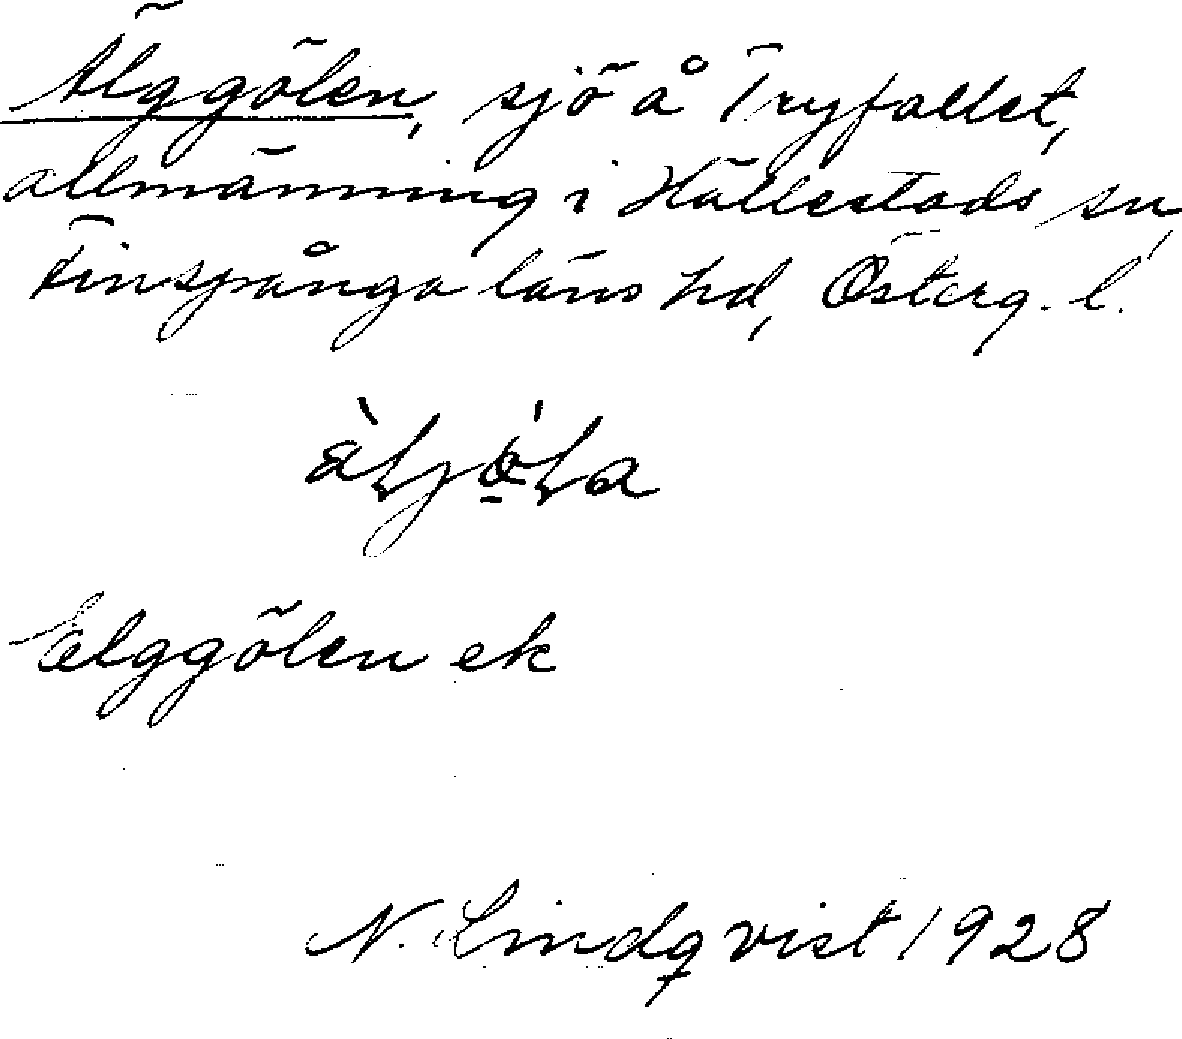 Älggölen, sjö å Tryfallet,
allmänning i Hällestads sn,
Finspånga läns hd, Österg. l.
Elggölen ek
N. Lindqvist 1928